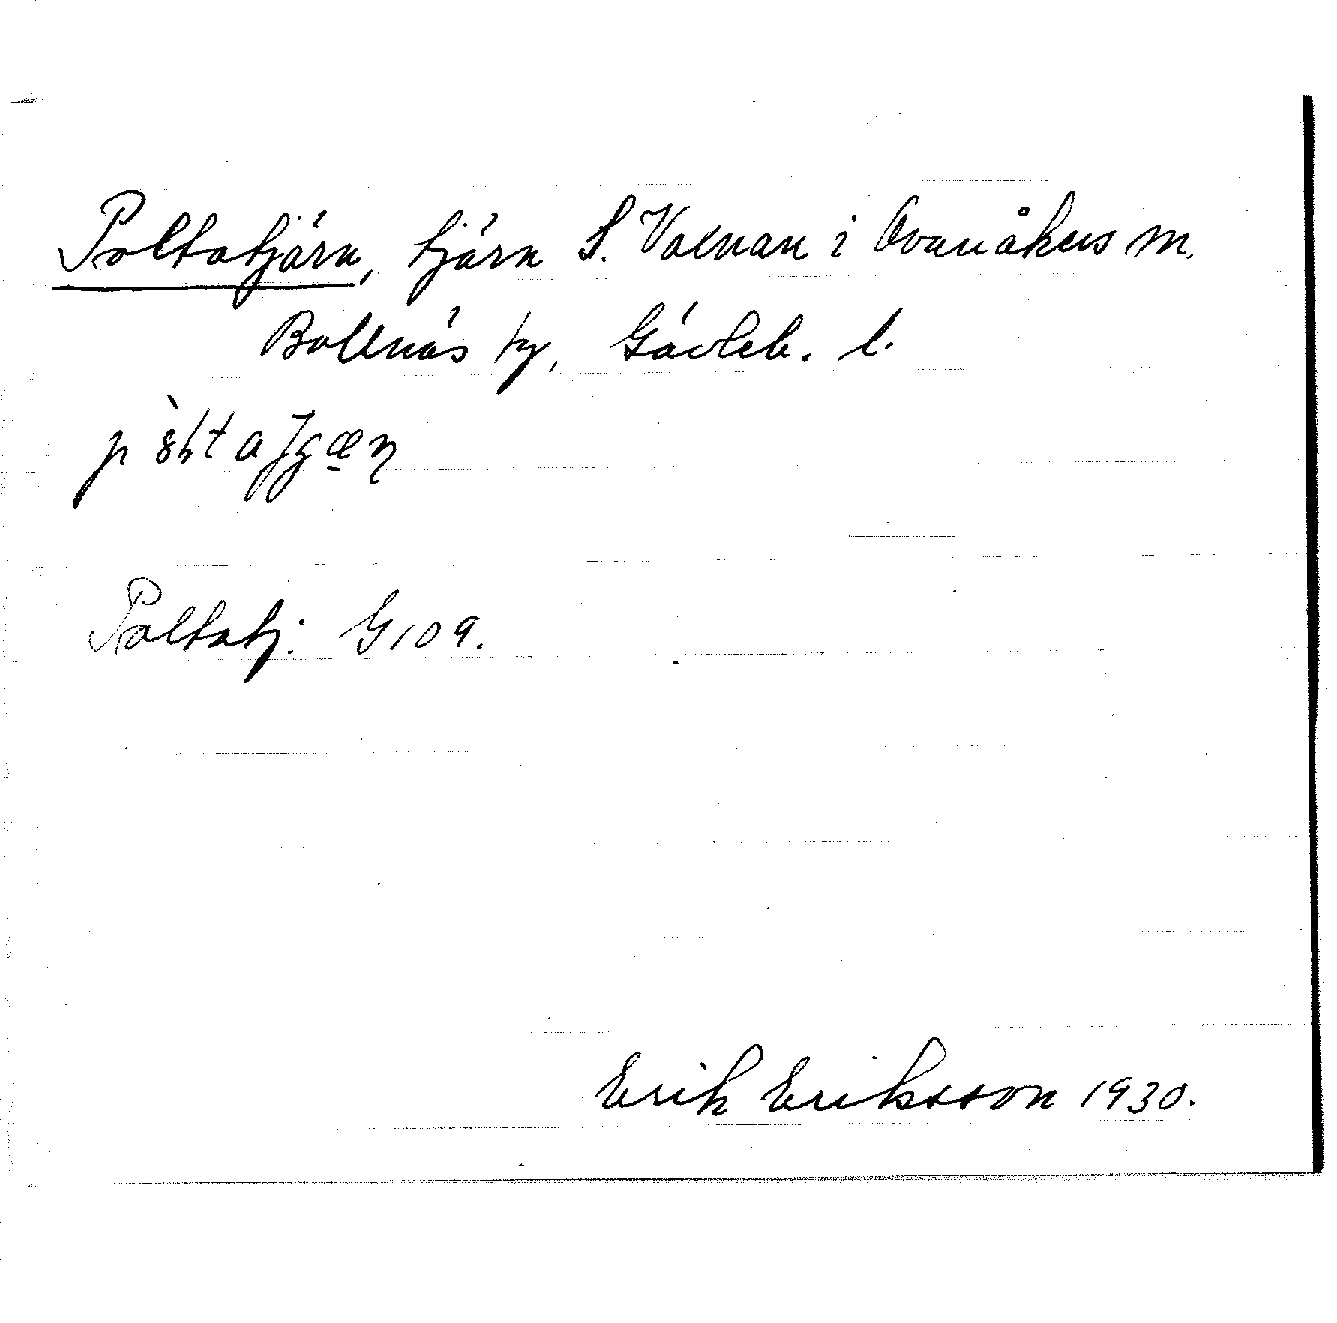 Poltatjärn, tjärn S. Voxnan i Ovanåkers m.
Bollnäs sn, Gävleb. l.
Poltatj. G109.
Erik Eriksson 1930.